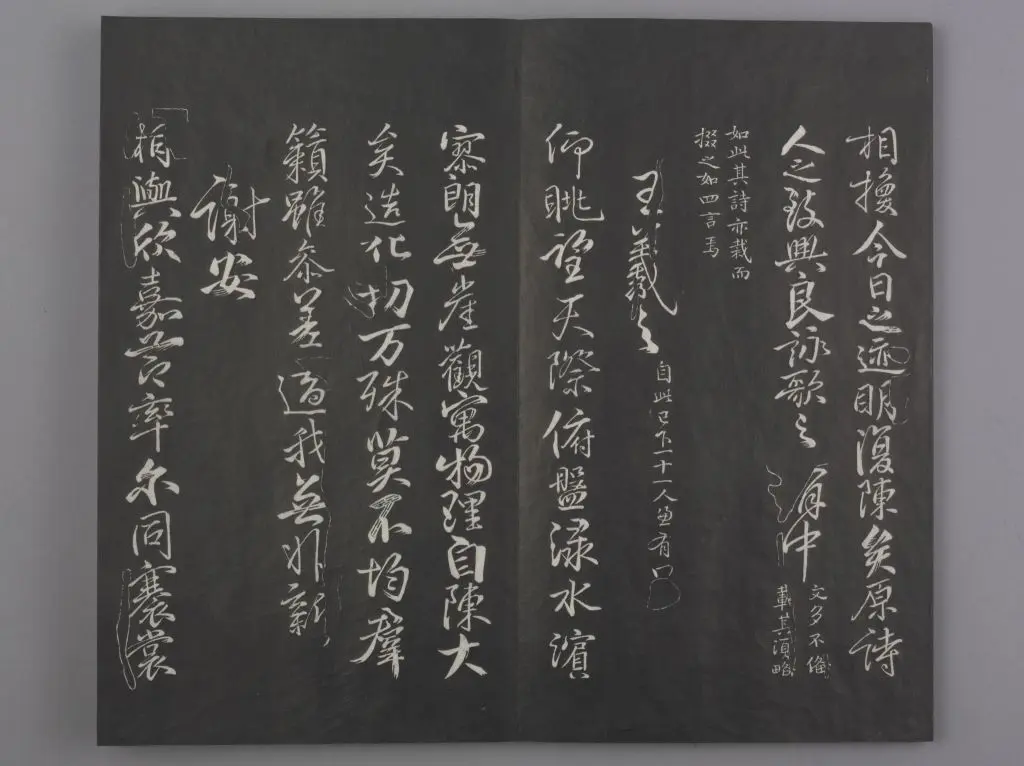 相推今日之迹明復陳矣原詩
人之致興良詠歌之有由
文多不備
載其
略
如此其詩亦裁而
掇之如四言焉
王羲之
自此已下一十一人並有
仰眺望天際俯盤淥水濱
寥朗無崖觀寓物理自陳大
矣造化功万殊莫不均群
籟雖参差適我無非新
謝安
相與欣嘉節率尔同褰裳